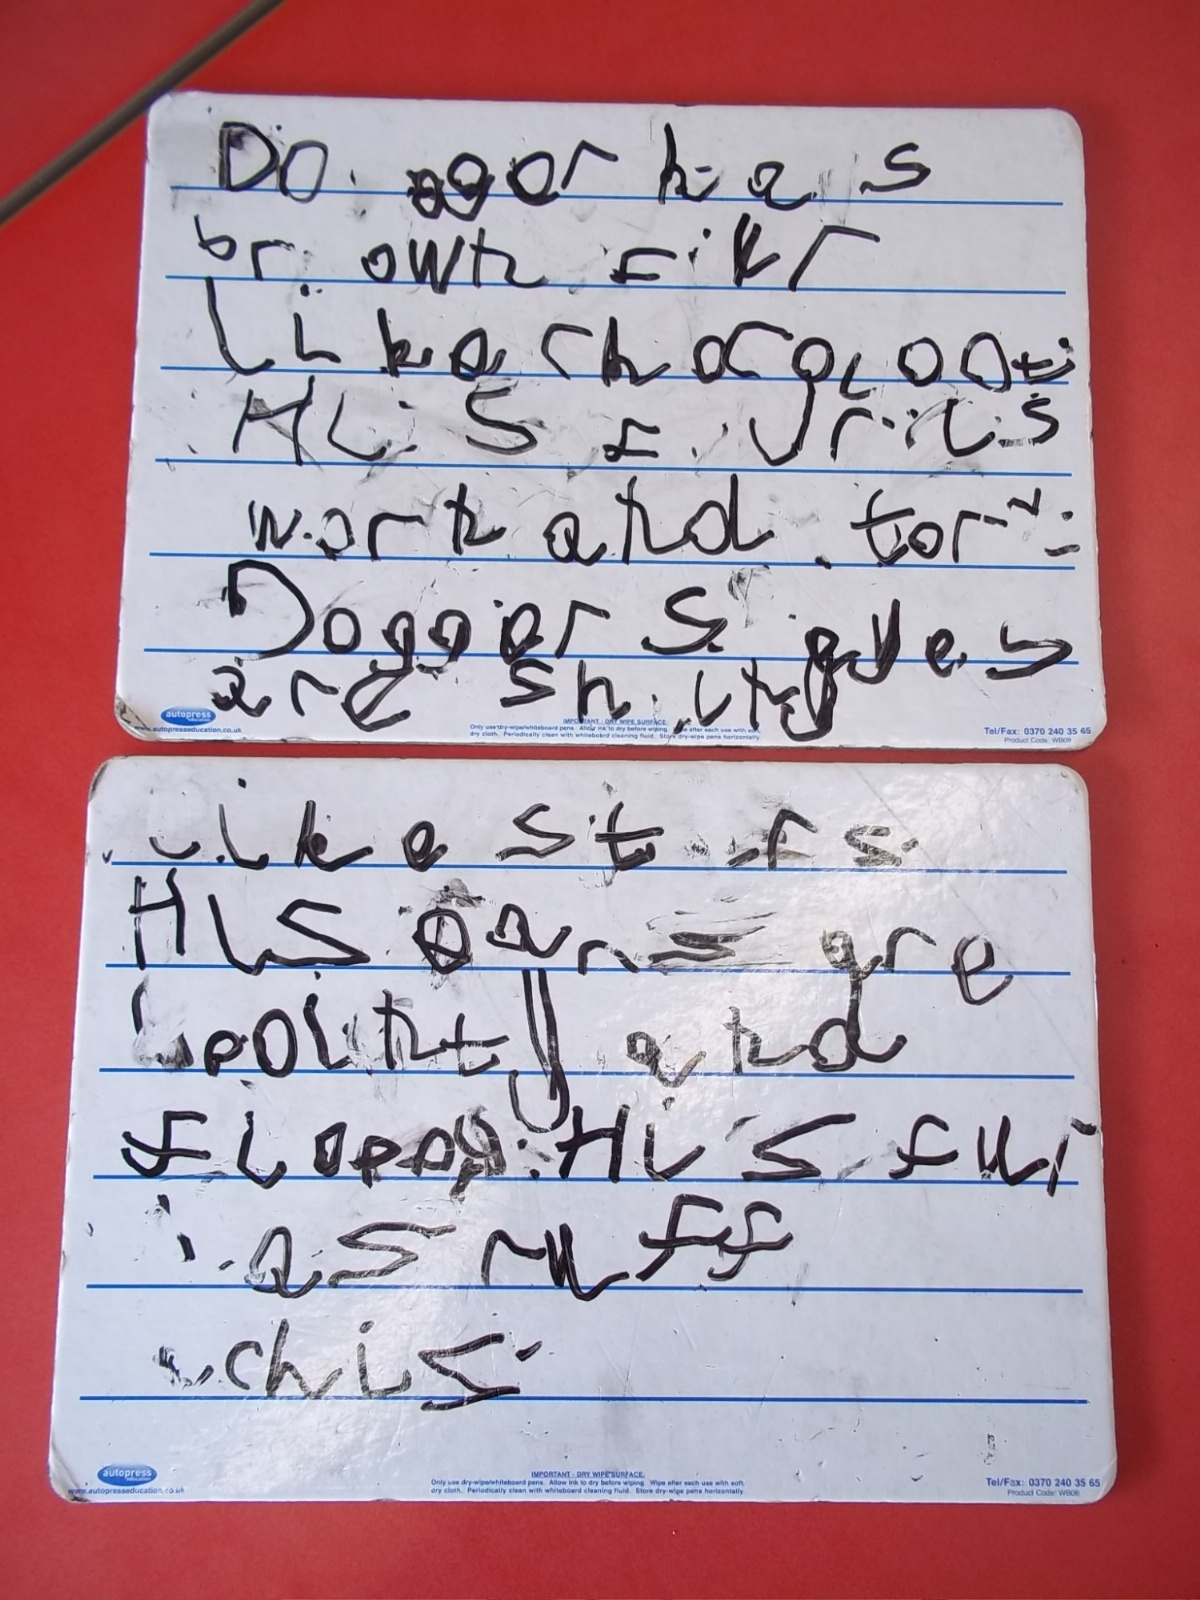 Doggor has
brown fur
like a
His is
worn and torn.
Doggors eyes
are shity
autopress education
www.autopresseducation.co.uk
IMPORTANT - DRY WIPE SURFACE.
Only use dry-wipe/whiteboard pens. Allow ink to dry before wiping. Wipe after each use with soft,
dry cloth. Periodically clean with whiteboard cleaning fluid. Store dry-wipe pens horizontally.
Tel/Fax: 0370 240 35 65
Product Code: WB06
like stars.
His ears are
pointy and
floppy. His fur
as ruff
chis
autopress education
www.autopresseducation.co.uk
IMPORTANT - DRY WIPE SURFACE.
Only use dry-wipe/whiteboard pens. Allow ink to dry before wiping. Wipe after each use with soft,
dry cloth. Periodically clean with whiteboard cleaning fluid. Store dry-wipe pens horizontally.
Tel/Fax: 0370 240 35 65
Product Code: WB06